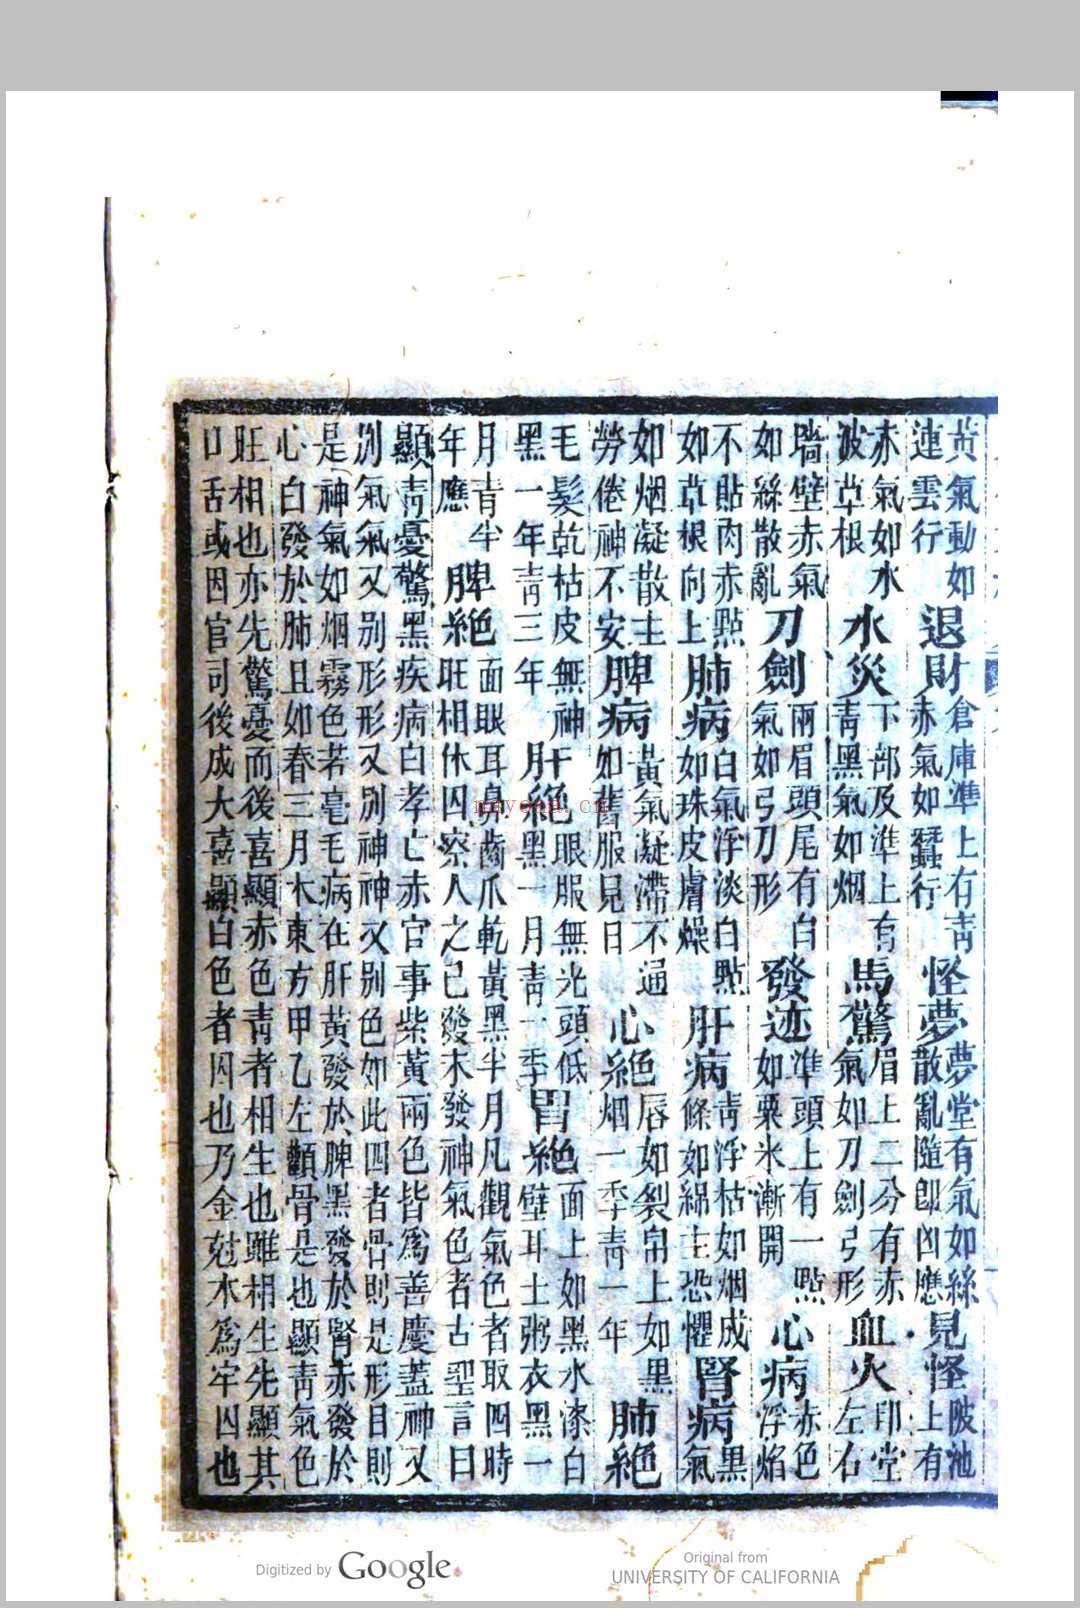 黃氣動如
連雲行
退財
倉庫準上有青
赤氣如蠶行
怪夢
夢堂有氣如絲
散亂隨卽凶應
見怪
陂池
上有
赤氣如水
波草根
水災
下部及準上有
靑黑氣如烟
馬驚
眉上二分有赤
氣如刀劍弓形
血火
印堂
左右
墻壁赤氣
如絲散亂
刀劍
兩眉頭尾有白
氣如弓刀形
發迹
準頭上有一點
如粟米漸開
心病
赤色
浮焰
不貼肉赤點
如草根向上
肺病
白氣浮淡白點
如珠皮膚燥
肝病
靑浮枯如烟成
條如綿主恐懼
腎病
黑
氣
如烟凝散主
勞倦神不安
脾病
黃氣凝滯不通
如舊服見日
心絕
唇如裂帛上如黑
烟一季靑一年
肺絕
毛髮乾枯皮無神
黑一年靑三年
肝絕
眼服無光頭低
黑一月靑一季
胃絕
面上如黑水漆白
壁耳土粥衣黑一
月青半
年應
脾絕
面眼耳鼻齒爪乾黃黑半月凡觀氣色者取四時
旺相休囚察人之已發未發神氣色者古聖言曰
顯靑憂驚黑疾病白孝亡赤官事紫黃兩色皆爲善慶蓋神又
別氣氣又別形形又別神神又別色如此四者骨則是形目則
是神氣如烟霧色若毫毛病在肝黃發於脾黑發於腎赤發於
心白發於肺且如春三月木東方甲乙左顴骨是也顯靑氣色
旺相也亦先驚憂而後喜顯赤色靑者相生也雖相生先顯其
口舌或因官司後成大喜顯白色者囚也乃金尅木爲牢囚也
nayona.cn
Digitized by Google
Original from
UNIVERSITY OF CALIFORNIA